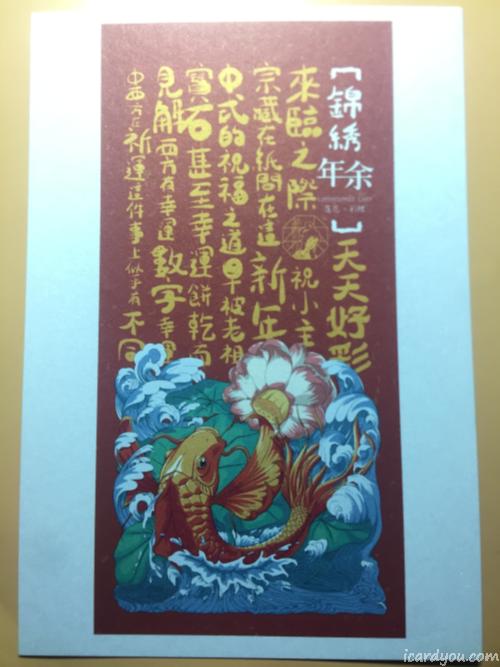 【錦綉年余】
中西方在祈運這件事上似乎有不同
見解西方有幸運數字幸運
寶石甚至幸運餅乾而
中式的祝福之道早被老祖
宗藏在紙間在這新年
來臨之際祝小主
天天好彩
icardyou.com